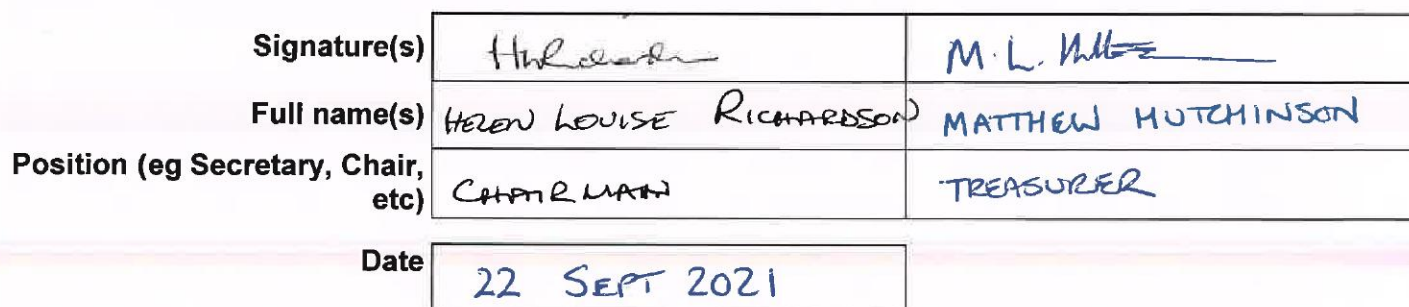 Signature(s) M. L.
Full name(s) HELEN LOUISE RICHARDSON MATTHEW HUTCHINSON
Position (eg Secretary, Chair,
etc) CHAIRMAN TREASURER
Date 22 SEPT 2021